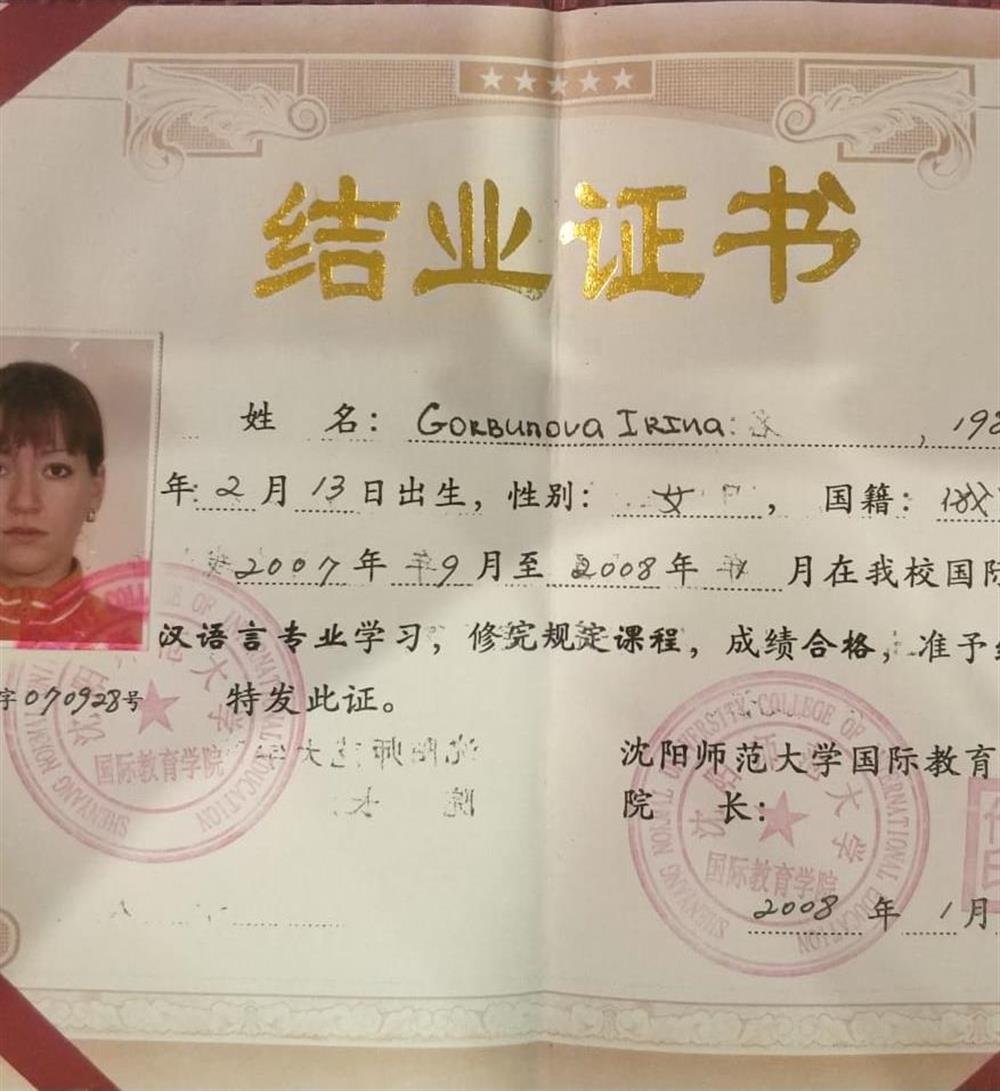 结业证书
姓 名: Gorbunova Irina , 198
年 2 月 13 日出生, 性别: 女 , 国籍: 俄
2007 年 9 月至 2008 年 月在我校国际
汉语言专业学习, 修完规定课程, 成绩合格, 准予结
字 070928 号 特发此证。
沈阳师范大学国际教育
院 长:
2008 年 1 月
SHENYANG NORMAL UNIVERSITY COLLEGE OF INTERNATIONAL EDUCATION
沈阳师范大学
国际教育学院
SHENYANG NORMAL UNIVERSITY COLLEGE OF INTERNATIONAL EDUCATION
沈阳师范大学
国际教育学院